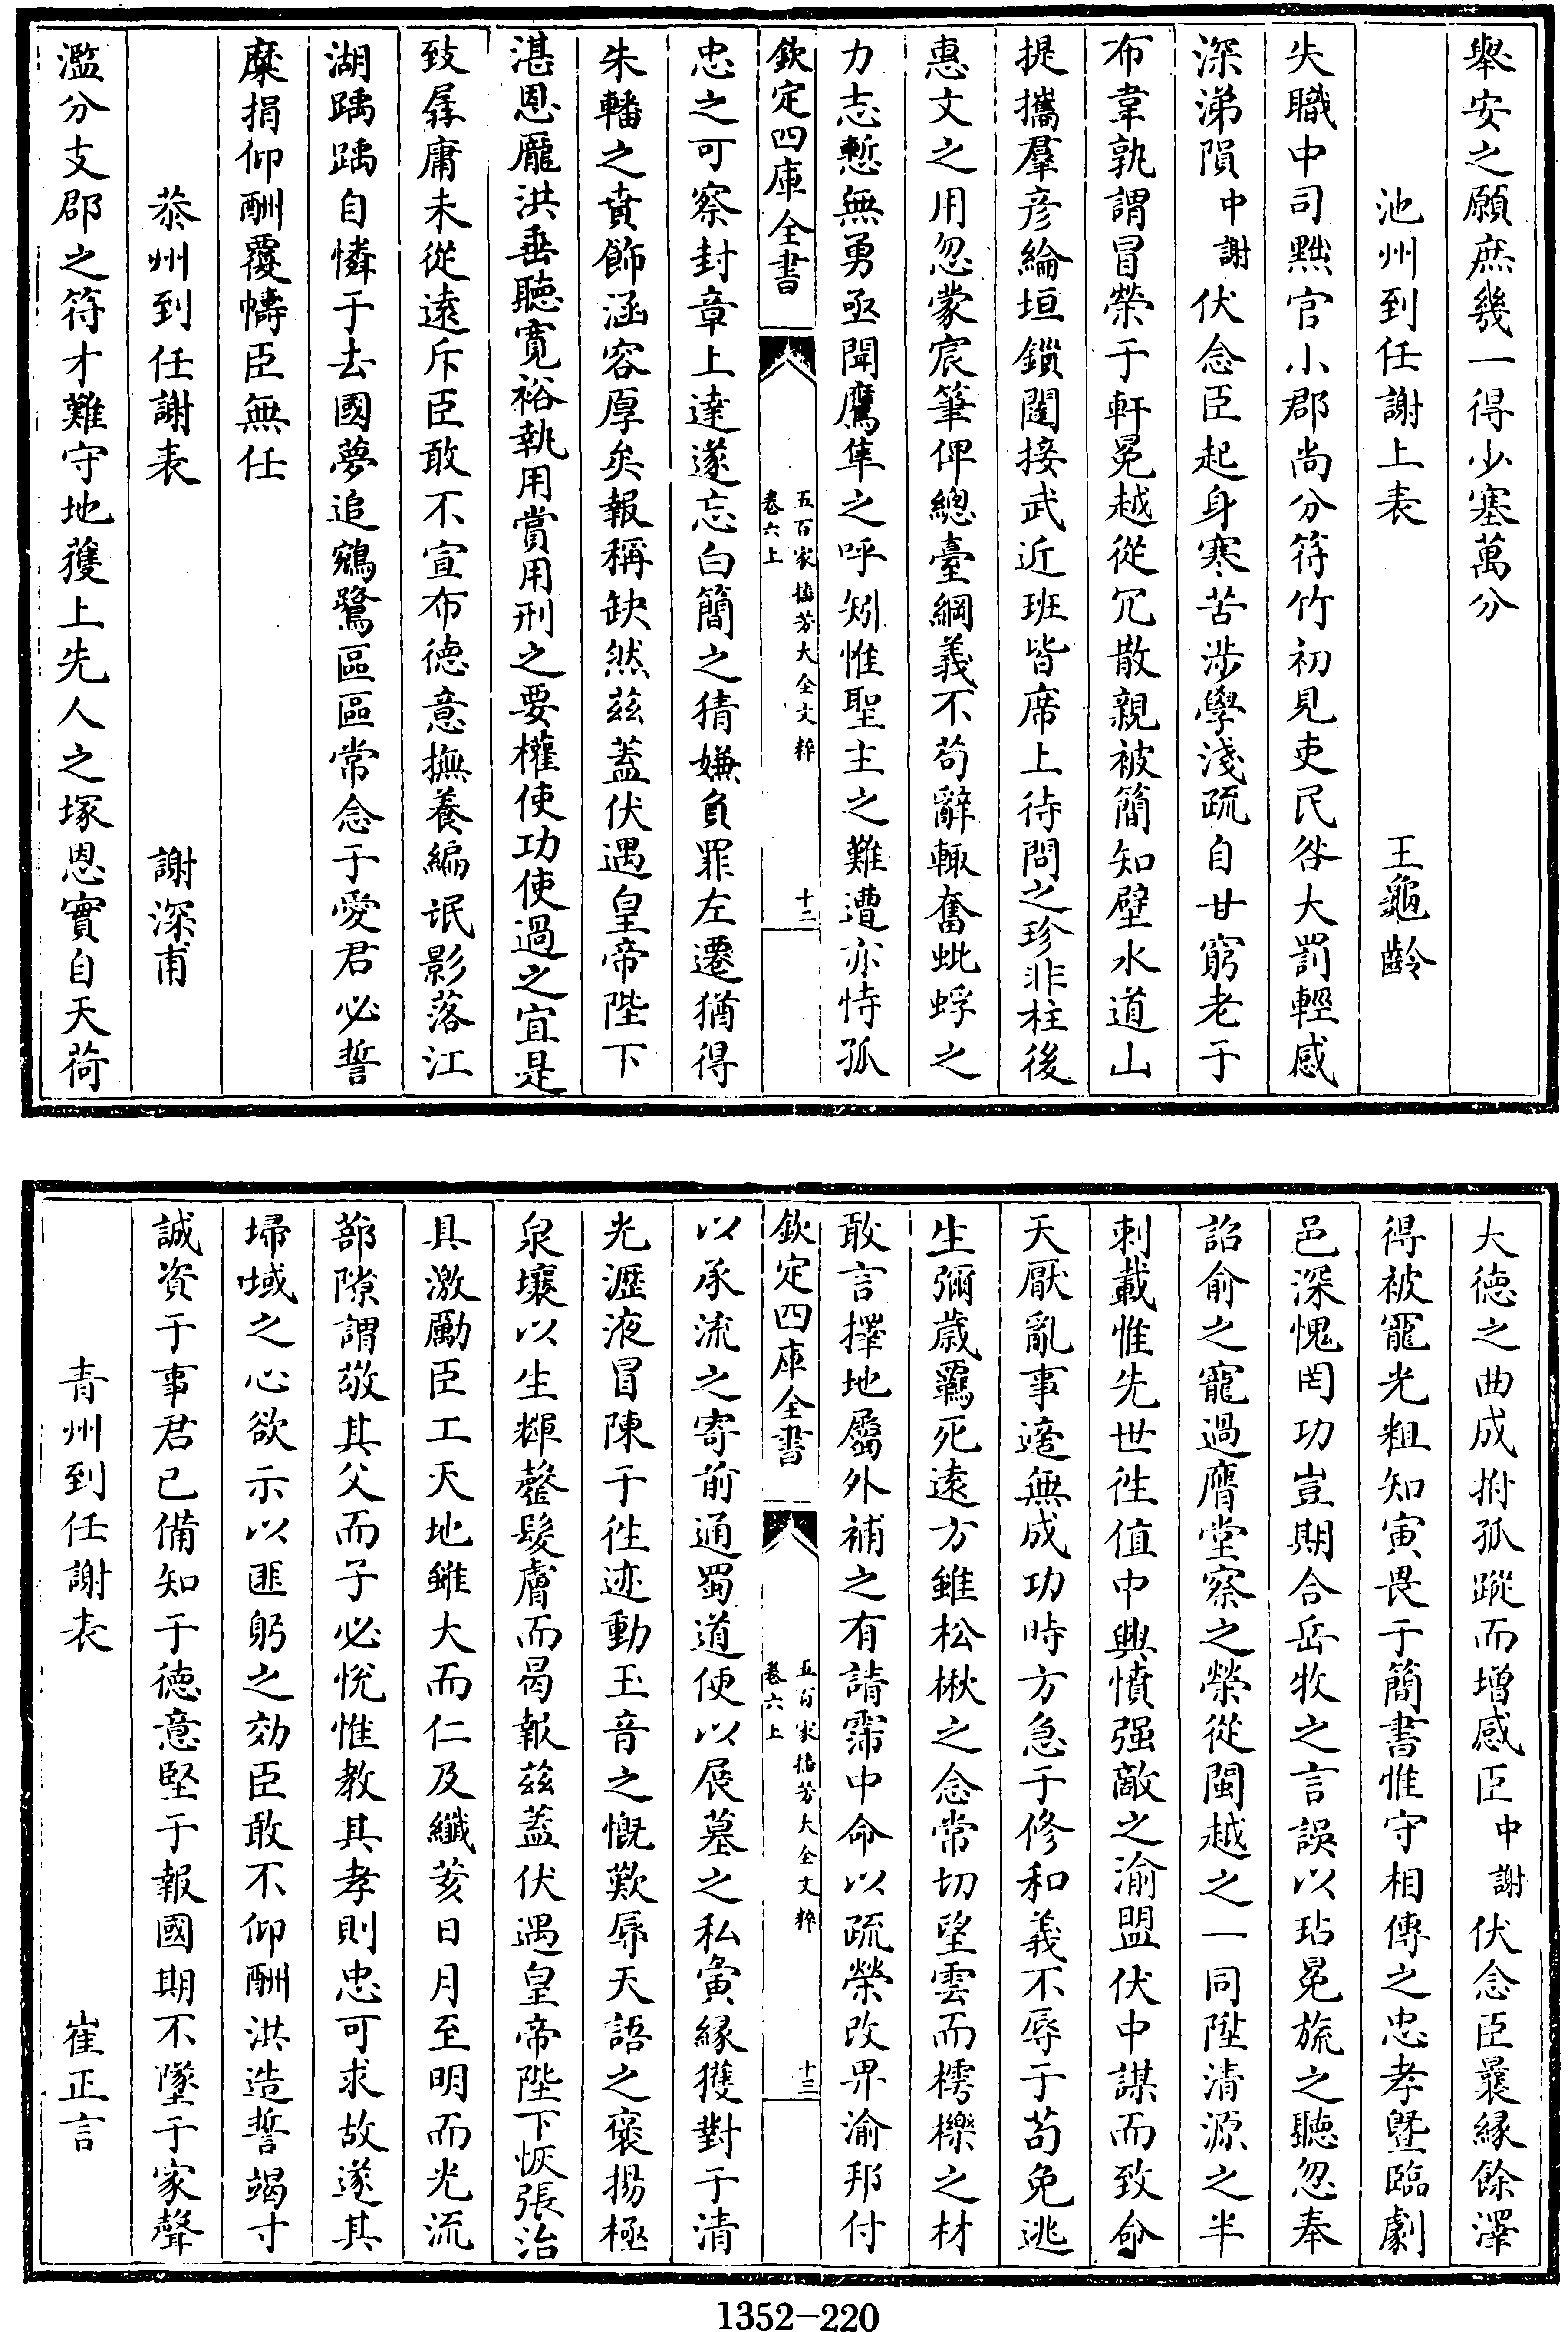 舉安之願庶幾一得少塞萬分
池州到任謝上表　王龜齡
失職中司黜官小郡尚分符竹初見吏民咎大罰輕感
深涕隕中謝伏念臣起身寒苦涉學淺疏自甘窮老于
布韋孰謂冒榮于軒冕越從冗散親被簡知璧水道山
提攜羣彦綸垣鎖闥接武近班皆席上待問之珍非柱後
惠文之用忽蒙宸筆俾總臺綱義不苟辭輒奮蚍蜉之
力志慙無勇亟聞鷹隼之呼矧惟聖主之難遭亦恃孤
欽定四庫全書　五百家播芳大全文粹　卷六上　十二
忠之可察封章上達遂忘白簡之猜嫌負罪左遷猶得
朱轓之賁飾涵容厚矣報稱缺然兹蓋伏遇皇帝陛下
湛恩龎洪垂聽寛裕執用賞用刑之要權使功使過之宜是
致孱庸未從逺斥臣敢不宣布德意撫養編氓影落江
湖踽踽自憐于去國夢追鵷鷺區區常念于愛君必誓
糜捐仰酬覆幬臣無任
㳟州到任謝表　謝深甫
濫分支郡之符才難守地獲上先人之塚恩實自天荷
大德之曲成拊孤蹤而增感臣中謝伏念臣曩縁餘澤
得被寵光粗知寅畏于簡書惟守相傳之忠孝暨臨劇
邑深愧罔功豈期合岳牧之言誤以玷冕旒之聽忽奉
詔俞之寵過膺堂察之榮從閩越之一同陞清源之半
刺載惟先世徃值中興憤强敵之渝盟伏中謀而致命
天厭亂事遽無成功時方急于修和義不辱于苟免逃
生彌歳羈死逺方雖松楸之念常切望雲而樗櫟之材
敢言擇地屬外補之有請霈中命以疏榮改畀渝邦付
欽定四庫全書　五百家播芳大全文粹　卷六上　十三
以承流之寄前通蜀道便以展墓之私夤縁獲對于清
光瀝液冒陳于徃迹動玉音之慨歎辱天語之褒揚極
泉壤以生輝罄髮膚而曷報兹蓋伏遇皇帝陛下恢張治
具激勵臣工天地雖大而仁及纖芥日月至明而光流
蔀隙謂敬其父而子必悅惟教其孝則忠可求故遂其
埽域之心欲示以匪躬之効臣敢不仰酬洪造誓竭寸
誠資于事君已備知于德意堅于報國期不墜于家聲
青州到任謝表　崔正言
1352-220